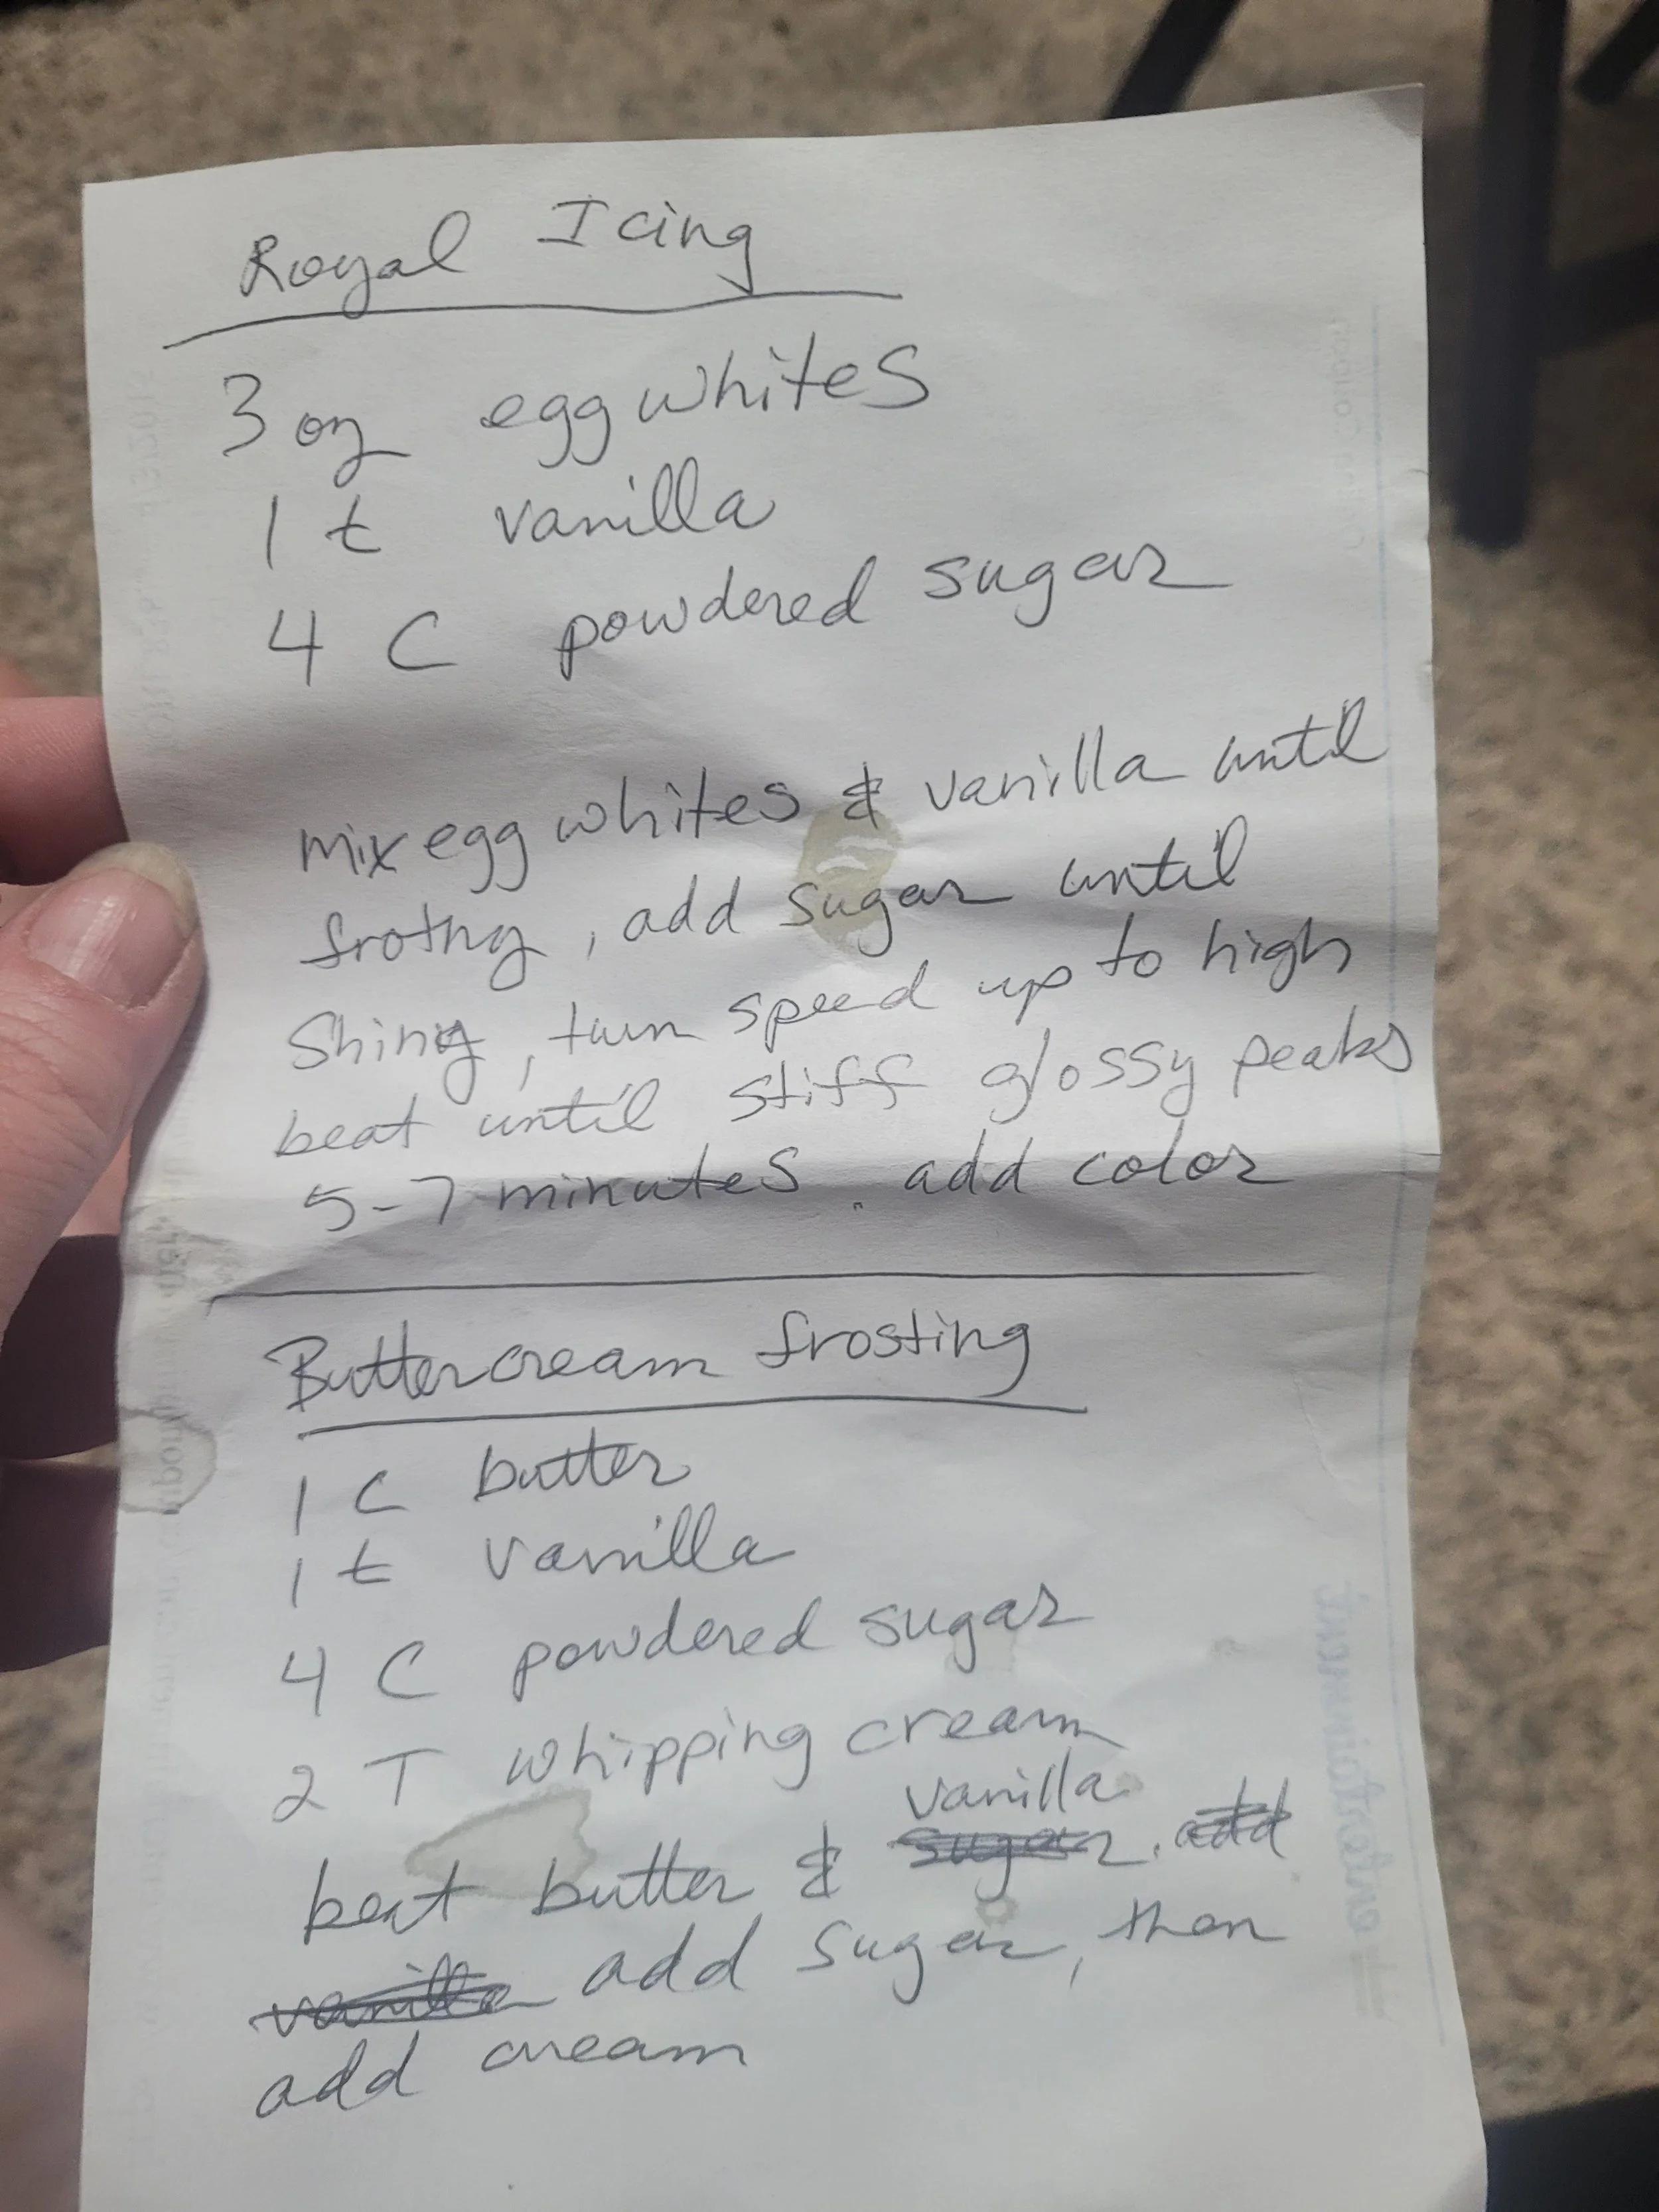 Royal Icing
3 oz egg whites
1 t vanilla
4 C powdered sugar
mix egg whites & vanilla until
frothy, add sugar until
Shiny, turn speed up to high
beat until stiff glossy peaks
5-7 minutes. add color
Buttercream frosting
1 C butter
1 t vanilla
4 C powdered sugar
2 T whipping cream
vanilla
beat butter & sugar. add
vanilla add sugar, then
add cream